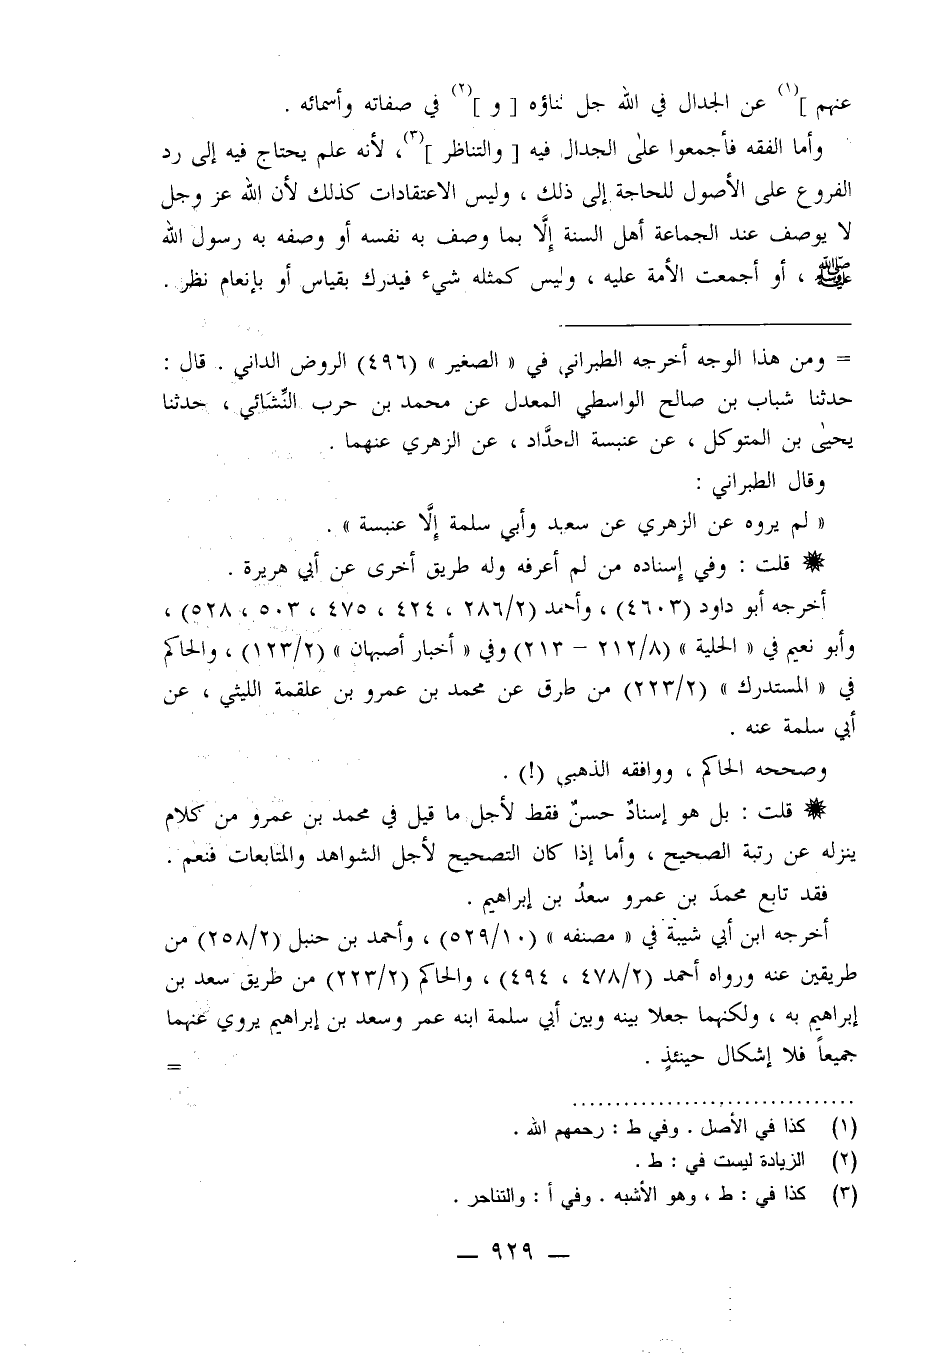 عنهم ](١) عن الجدال في الله جل ثناؤه [ و ](٢) في صفاته وأسمائه .
وأما الفقه فأجمعوا على الجدال فيه [ والتناظر ](٣)، لأنه علم يحتاج فيه إلى رد
الفروع على الأصول للحاجة إلى ذلك ، وليس الاعتقادات كذلك لأن الله عز وجل
لا يوصف عند الجماعة أهل السنة إلَّا بما وصف به نفسه أو وصفه به رسول الله
ﷺ ، أو أجمعت الأمة عليه ، وليس كمثله شيء فيدرك بقياس أو بإنعام نظر .
= ومن هذا الوجه أخرجه الطبراني في « الصغير » (٤٩٦) الروض الداني . قال :
حدثنا شباب بن صالح الواسطي المعدل عن محمد بن حرب النِّشَائي ، حدثنا
يحيىٰ بن المتوكل ، عن عنبسة الحدَّاد ، عن الزهري عنهما .
وقال الطبراني :
« لم يروه عن الزهري عن سعيد وأبي سلمة إلَّا عنبسة » .
✸ قلت : وفي إسناده من لم أعرفه وله طريق أخرى عن أبي هريرة .
أخرجه أبو داود (٤٦٠٣) ، وأحمد (٢٨٦/٢ ، ٤٢٤ ، ٤٧٥ ، ٥٠٣ ، ٥٢٨) ،
وأبو نعيم في « الحلية » (٢١٢/٨ – ٢١٣) وفي « أخبار أصبهان » (١٢٣/٢) ، والحاكم
في « المستدرك » (٢٢٣/٢) من طرق عن محمد بن عمرو بن علقمة الليثي ، عن
أبي سلمة عنه .
وصححه الحاكم ، ووافقه الذهبي (!) .
✸ قلت : بل هو إسنادٌ حسنٌ فقط لأجل ما قيل في محمد بن عمرو من كلام
ينزله عن رتبة الصحيح ، وأما إذا كان التصحيح لأجل الشواهد والمتابعات فنعم .
فقد تابع محمدَ بن عمرو سعدُ بن إبراهيم .
أخرجه ابن أبي شيبة في « مصنفه » (٥٢٩/١٠) ، وأحمد بن حنبل (٢٥٨/٢) من
طريقين عنه ورواه أحمد (٤٧٨/٢ ، ٤٩٤) ، والحاكم (٢٢٣/٢) من طريق سعد بن
إبراهيم به ، ولكنهما جعلا بينه وبين أبي سلمة ابنه عمر وسعد بن إبراهيم يروي عنهما
جميعاً فلا إشكال حينئذٍ . =
(١) كذا في الأصل . وفي ط : رحمهم الله .
(٢) الزيادة ليست في : ط .
(٣) كذا في : ط ، وهو الأشبه . وفي أ : والتناحر .
— ٩٢٩ —